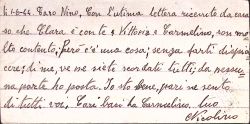 li 1-6-66. Caro Nino, Con l'ultima lettera ricevuto da co=
so che Clara è con te e Vittoria e Carmelino, son mol
to contento; Però c'è una cosa; senza farti dispia
cere; di me, ve ne siete scordati tutti; da nessu=
na parte ho posta. Io sto bene, pare ne sento
di tutti voi, Cari baci ha Carmelino. tuo
Nicolino